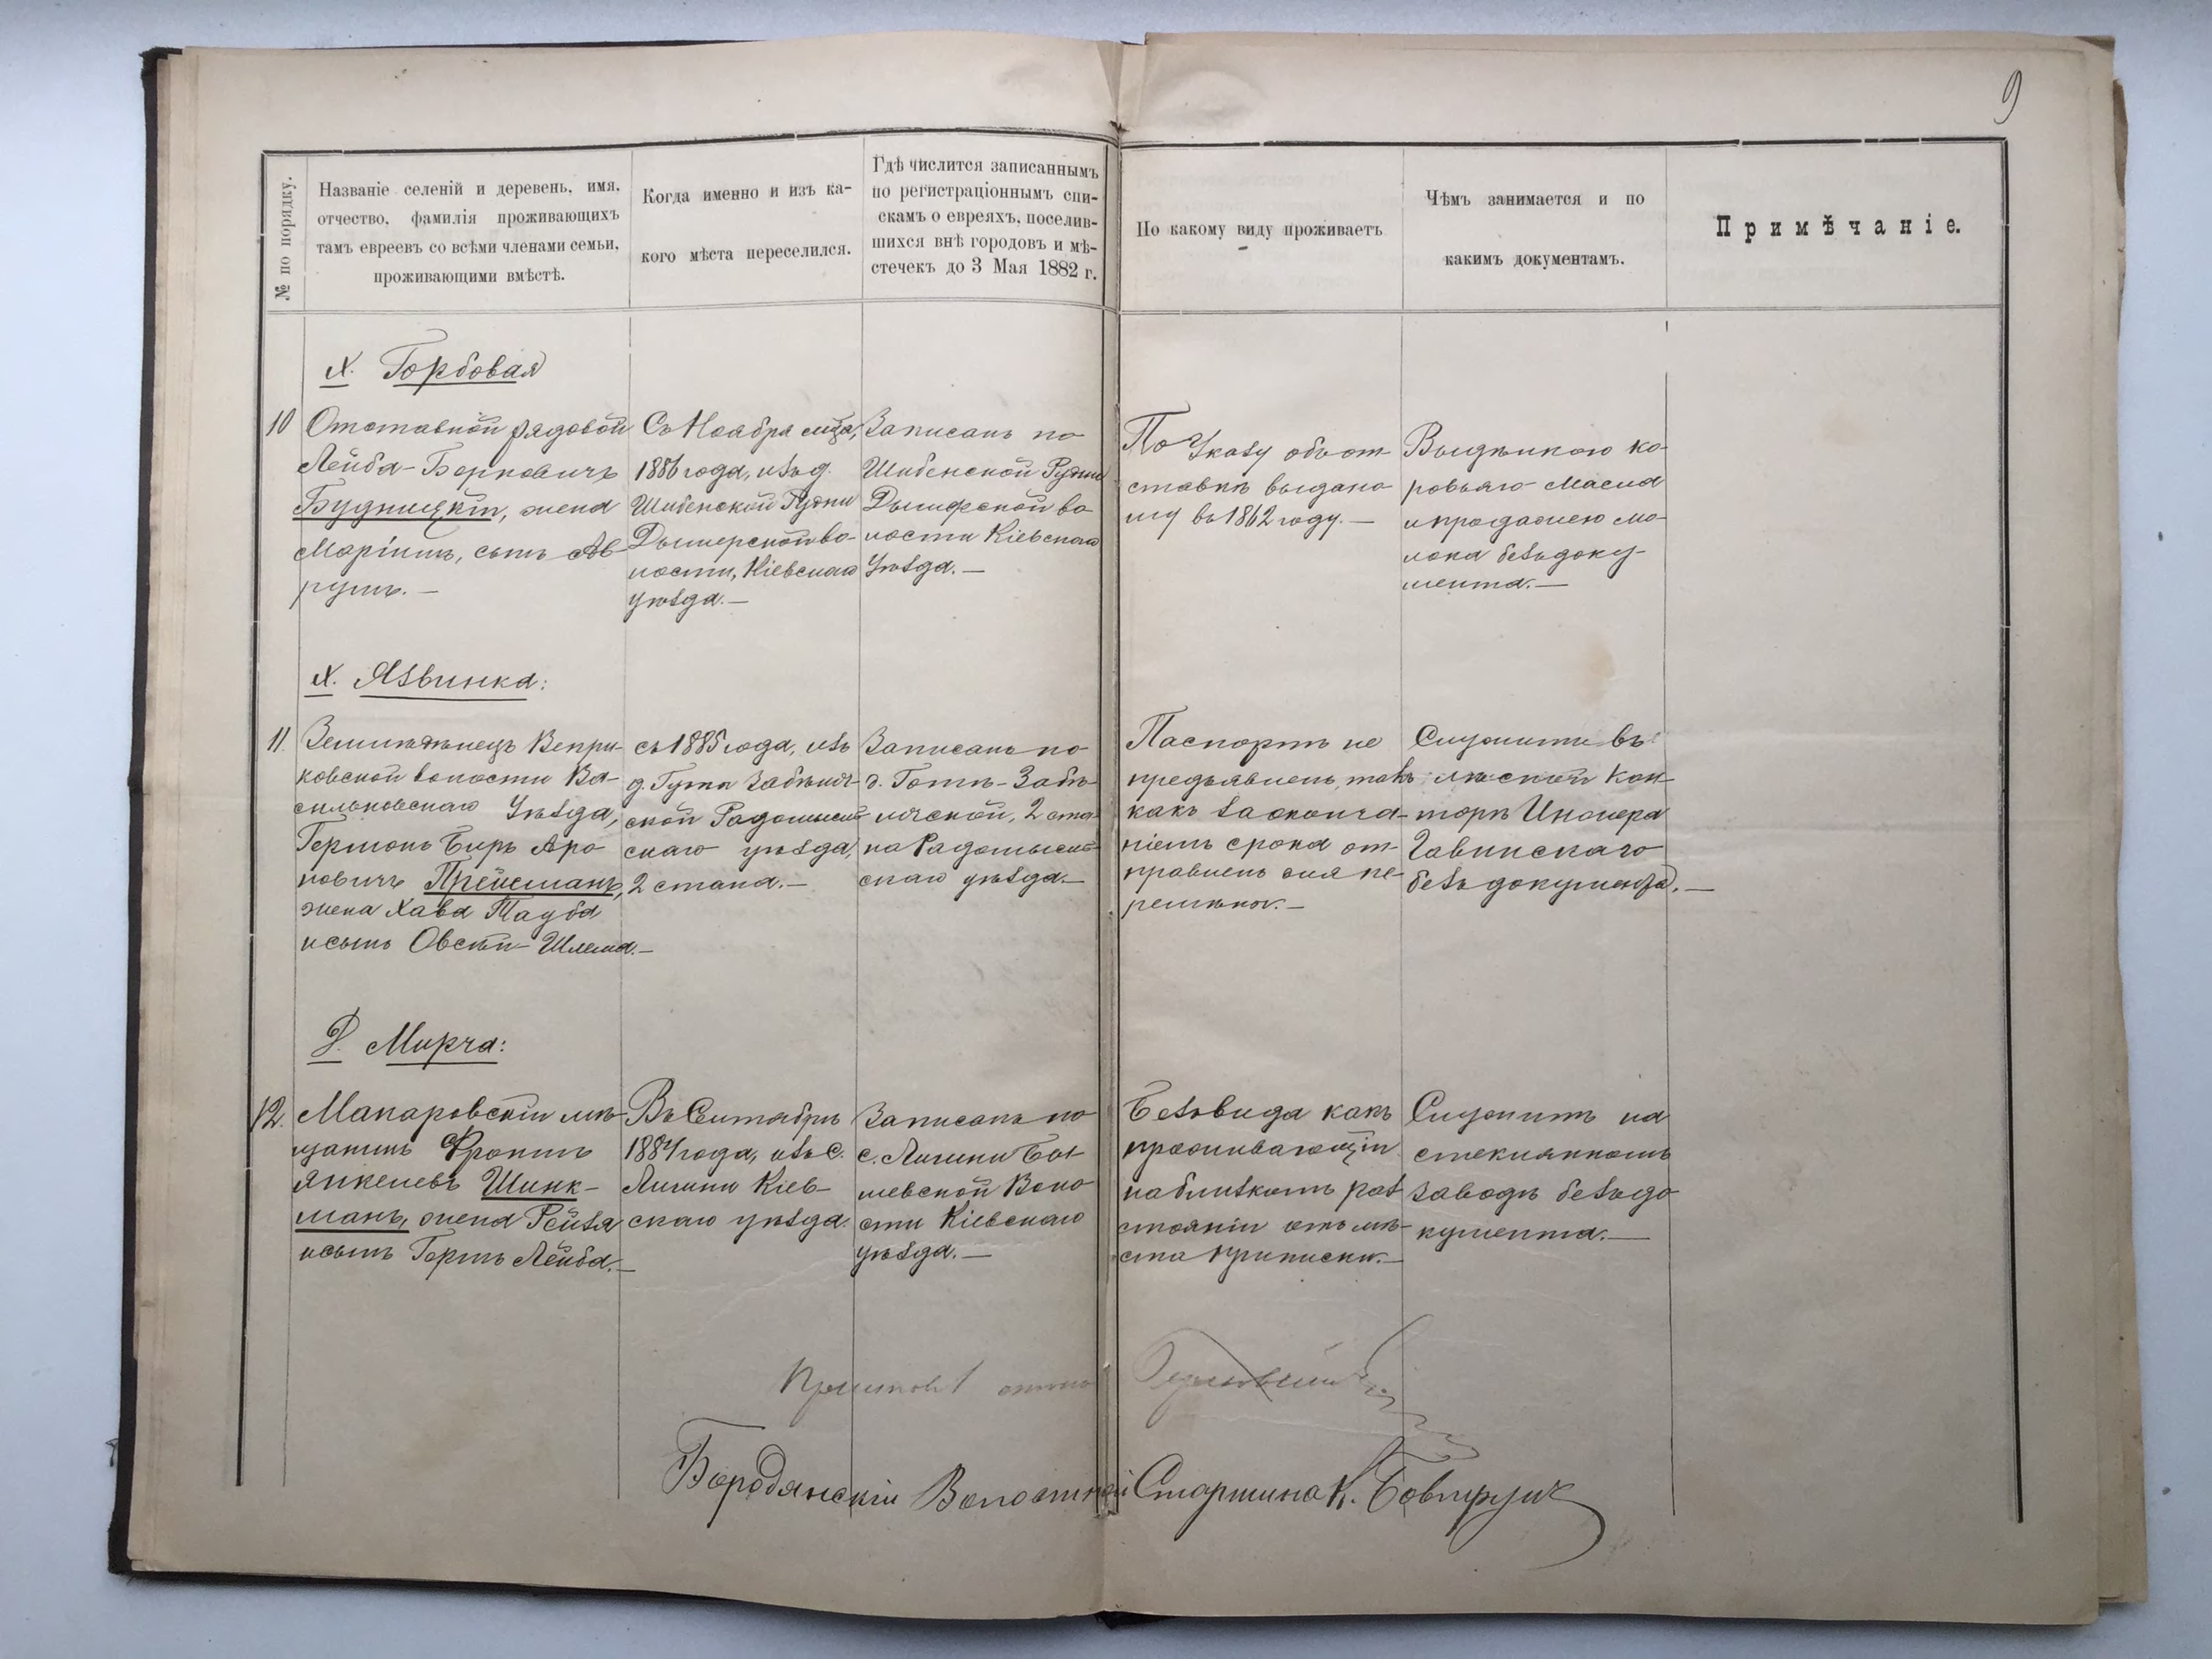 9
№ по порядку.
Названіе селеній и деревень, имя,
отчество, фамилія проживающихъ
тамъ евреевъ со всѣми членами семьи,
проживающими вмѣстѣ.
Когда именно и изъ ка-
кого мѣста переселился.
Гдѣ числится записаннымъ
по регистраціоннымъ спи-
скамъ о евреяхъ, поселив-
шихся внѣ городовъ и мѣ-
стечекъ до 3 Мая 1882 г.
По какому виду проживаетъ
Чѣмъ занимается и по
какимъ документамъ.
Примѣчаніе.
Х. Горбовая
10
Отставной рядовой
Лейба-Берковичъ
Будницкій, жена
Маріимъ, сынъ Ав
румъ.—
Съ Ноября мѣца,
1886 года, изъ д.
Шибенской Рудни
Дымерской во-
лости, Кіевскаго
уѣзда.—
Записанъ по
Шибенской Рудни
Дымерской во
лости Кіевскаго
Уѣзда.—
По Указу объ от
ставкѣ выдано
му въ 1862 году.—
Выдѣлкою ко-
ровьяго масла
и продажею мо-
лока безъ доку-
мента.—
Х. Язвинка:
11.
Землѣделецъ Вепри-
ковской волости Ва-
сильковскаго Уѣзда,
Бирь Аро
новичъ Прейсманъ,
жена Хава Тауба
и сынъ Шлема.—
съ 1885 года, изъ
д. Гута Забѣлоч-
ской Радомысль
скаго уѣзда,
2 стана.—
Записанъ по
2 ста
на Радомысль
скаго уѣзда.—
Паспортъ не
предъявленъ, такъ
какъ за оконча-
ніемъ срока от-
правленъ для пе-
ремѣны.—
Служитъ въ
лѣсной кон-
торѣ Инженера
безъ документа.—
Д. Мирча:
12.
Макаровскій мѣ-
щанинъ Фроимъ
Янкелевъ Шинк-
манъ, жена Рейзя
и сынъ Гершъ Лейба.—
Въ Сентябрѣ
1884 года, изъ с.
Личини Кіев-
скаго уѣзда.
Записанъ по
с. Личини
Воло
сти Кіевскаго
уѣзда.—
Безъ вида какъ
проживающій
на близкомъ раз
стояніи отъ мѣ-
ста приписки.—
Служитъ на
стеклянномъ
заводѣ безъ до
кумента.—
Бородянскій Волостной Старшина К.